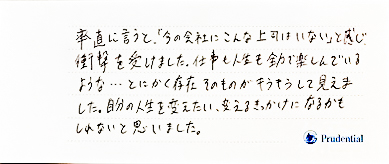 率直に言うと、「今の会社にこんな上司はいない」と感じ
衝撃を受けました。仕事も人生も全力で楽しんでいる
ような…とにかく存在そのものがキラキラして見えま
した。自分の人生を変えたい、変えるきっかけになるかも
しれないと思いました。
Prudential